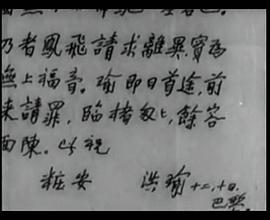 乃者鳳飛請求離異實為
無上福音。瑜即日首途,前
來請罪,臨楮匆匕,餘容
面陳。此祝
粧安 洪瑜 十二,十日.
巴黎